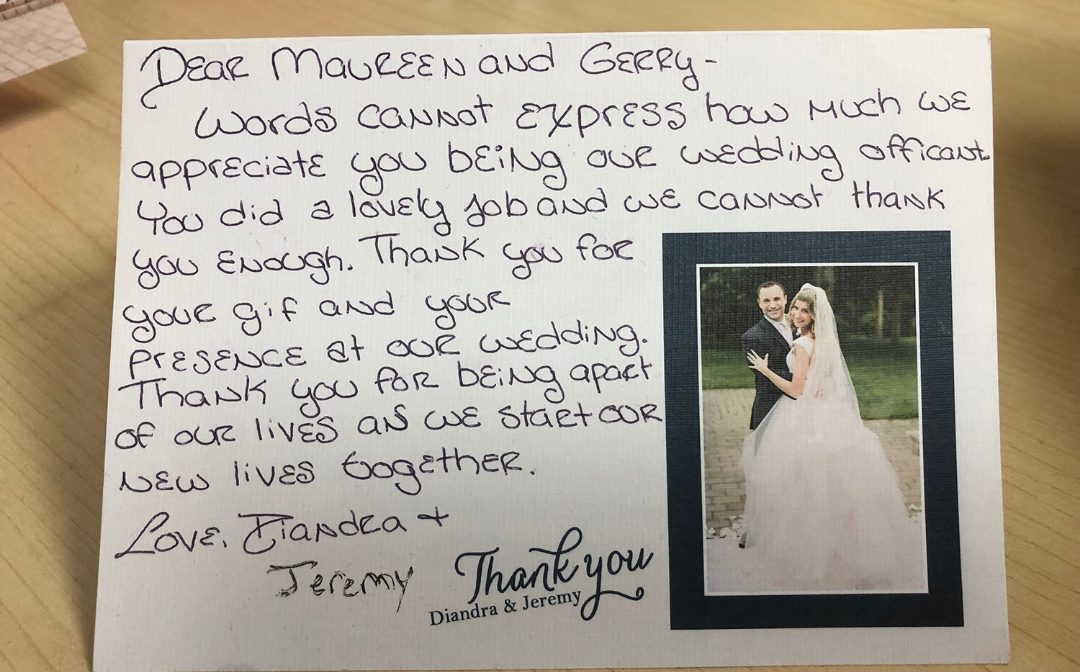 Dear Maureen and Gerry -
Words cannot express how much we
appreciate you being our wedding officant.
You did a lovely job and we cannot thank
you enough. Thank you for
your gif and your
presence at our wedding.
Thank you for being apart
of our lives as we start our
new lives together.
Love, Diandra +
Jeremy
Thank you
Diandra & Jeremy